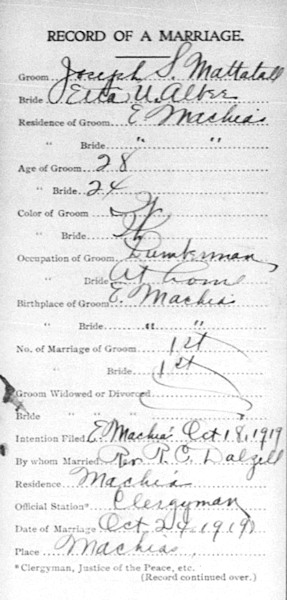 RECORD OF A MARRIAGE.
Groom Joseph S. Mattatall
Bride Etta U. Alber
Residence of Groom E Machias
" Bride " "
Age of Groom 28
" Bride 24
Color of Groom W
" Bride W
Occupation of Groom Lumberman
" Bride At home
Birthplace of Groom E. Machias
" Bride " "
No. of Marriage of Groom 1st
" Bride 1st
Groom Widowed or Divorced
Bride " "
Intention Filed E. Machias Oct 18, 1919
By whom Married Rev. R. C. Dalzell
Residence Machias
Official Station* Clergyman
Date of Marriage Oct 24 1919
Place Machias,
*Clergyman, Justice of the Peace, etc.
(Record continued over.)